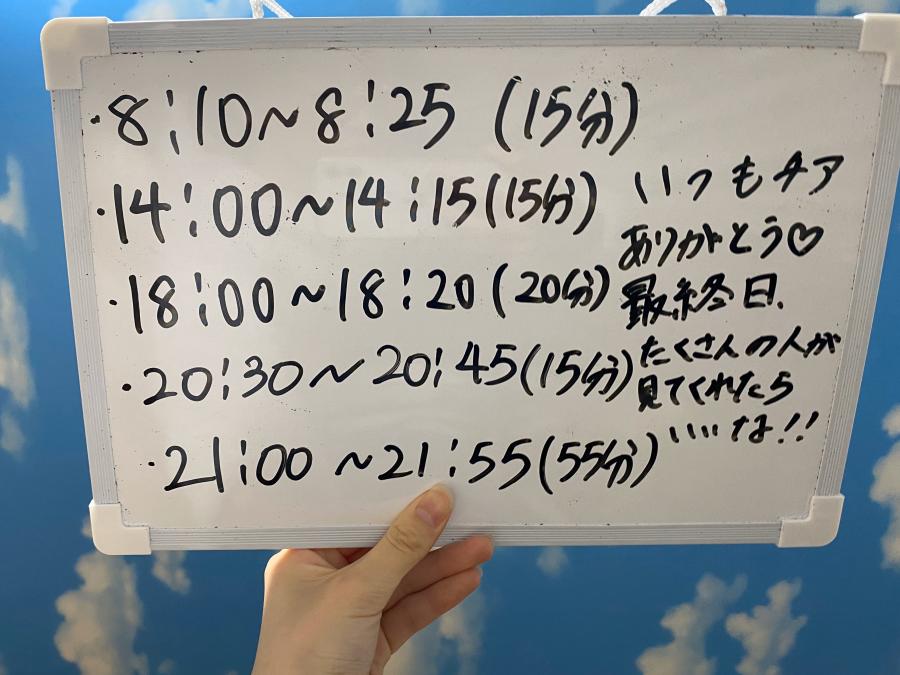 ・8:10~8:25 (15分)
・14:00~14:15(15分)
・18:00~18:20(20分)
・20:30~20:45(15分)
・21:00~21:55(55分)
いつもチア
ありがとう♡
最終日.
たくさんの人が
見てくれたら
いいな!!